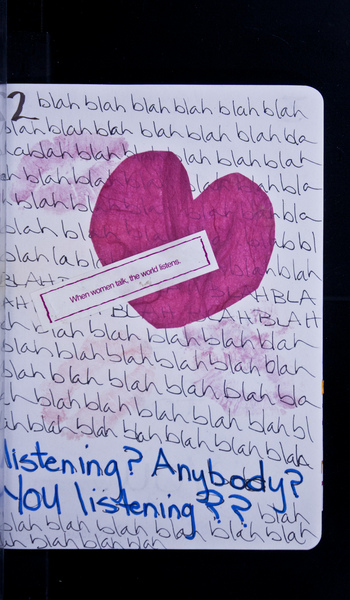 2 blah blah blah blah blah blah
blah blah blah blah blah bla
blah blah blah blah blah
blah blah blah blah bla
blah blah bla
blah bl
blah blah blah
When women talk, the world listens.
BLAH BLA
BLAH BLAH BLAH
blah blah blah blah blah blah
blah blah blah blah blah blah
blah blah blah blah blah bla
blah blah blah blah blah blah
blah blah blah blah blah bl
blah blah blah blah blah blah
listening? Anybody?
You listening??
blah
blah blah blah blah blah blah
blah blah blah